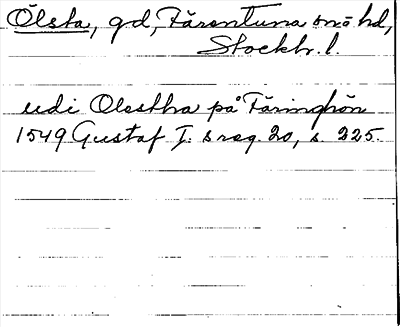 Ölsta, gd, Färentuna snö hd,
Stockh. l.
udi Olestha på Färinghön
1549 Gustaf I:s reg. 20, s. 225.